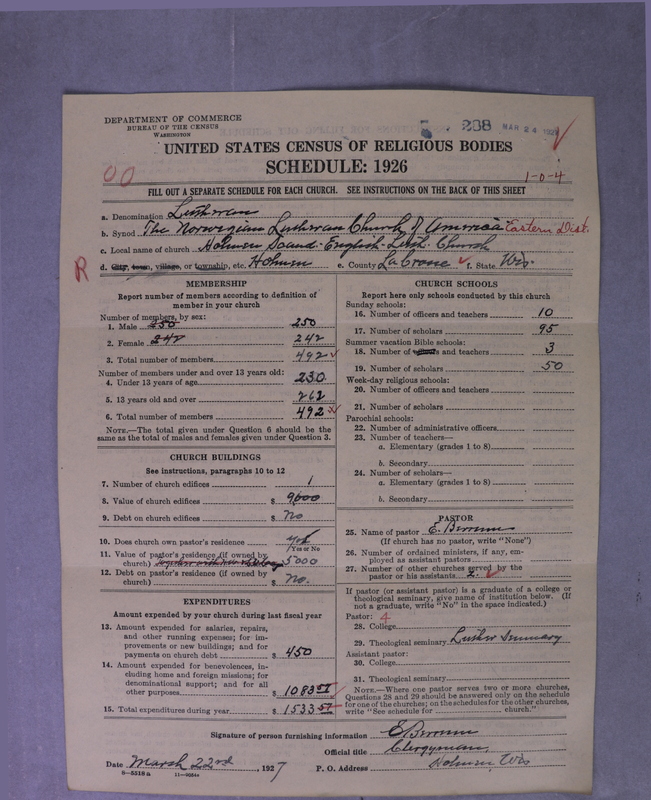 DEPARTMENT OF COMMERCE
BUREAU OF THE CENSUS
WASHINGTON
288 MAR 24
UNITED STATES CENSUS OF RELIGIOUS BODIES
SCHEDULE: 1926
1-0-4
FILL OUT A SEPARATE SCHEDULE FOR EACH CHURCH. SEE INSTRUCTIONS ON THE BACK OF THIS SHEET
a. Denomination Lutheran
b. Synod The Norwegian Lutheran Church of America Eastern Dist.
c. Local name of church Holmen English Luth. Church
d. City, town, village, or township, etc. Holmen e. County La Crosse f. State Wis.
R
MEMBERSHIP
Report number of members according to definition of member in your church
Number of members, by sex:
1. Male 250 250
2. Female 242 242
3. Total number of members 492
Number of members under and over 13 years old:
4. Under 13 years of age 230
5. 13 years old and over 262
6. Total number of members 492
NOTE.—The total given under Question 6 should be
same as the total of males and females given under Question 3.
CHURCH BUILDINGS
See instructions, paragraphs 10 to 12
7. Number of church edifices 1
8. Value of church edifices $ 9600
9. Debt on church edifices $ No
10. Does church own pastor's residence yes
(Yes or No
11. Value of pastor's residence (if owned by
church) $ 5000
12. Debt on pastor's residence (if owned by
church) $ No.
EXPENDITURES
Amount expended by your church during last fiscal year
13. Amount expended for salaries, repairs,
and other running expenses; for im-
provements or new buildings; and for
payments on church debt $ 450
14. Amount expended for benevolences, in-
cluding home and foreign missions; for
denominational support; and for all
other purposes $ 1083 57
15. Total expenditures during year $ 1533 57
CHURCH SCHOOLS
Report here only schools conducted by this church
Sunday schools:
16. Number of officers and teachers 10
17. Number of scholars 95
Summer vacation Bible schools:
18. Number of and teachers 3
19. Number of scholars 50
Week-day religious schools:
20. Number of officers and teachers
21. Number of scholars
Parochial schools:
22. Number of administrative officers
23. Number of teachers—
a. Elementary (grades 1 to 8)
b. Secondary
24. Number of scholars—
a. Elementary (grades 1 to 8)
b. Secondary
PASTOR
25. Name of pastor E.
(If church has no pastor, write "None")
26. Number of ordained ministers, if any, em-
ployed as assistant pastors
27. Number of other churches served by the
pastor or his assistants 2.
If pastor (or assistant pastor) is a graduate of a college or
theological seminary, give name of institution below. (If
not a graduate, write "No" in the space indicated.)
Pastor: 4
28. College
29. Theological seminary Luther Seminary
Assistant pastor:
30. College
31. Theological seminary
NOTE.—Where one pastor serves two or more churches,
Questions 28 and 29 should be answered only on the schedule
for one of the churches; on the schedules for the other churches,
write "See schedule for church."
Signature of person furnishing information E.
Official title Clergyman,
Date March 22nd, 1927 P. O. Address Holmen, Wis
8—5518a